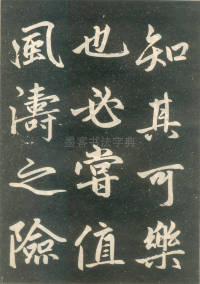 知其可樂
也必嘗值
風濤之險
墨客书法字典